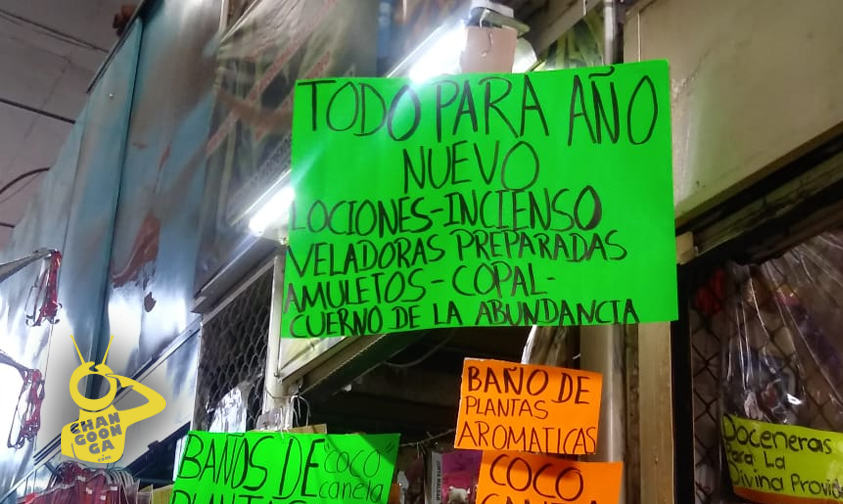 TODO PARA AÑO
NUEVO
LOCIONES-INCIENSO
VELADORAS PREPARADAS
AMULETOS-COPAL-
CUERNO DE LA ABUNDANCIA
BAÑO DE
PLANTAS
AROMATICAS
COCO
CANELA
BAÑOS DE "COCO"
PLANTAS canela
Doceneras
Para La
Divina Provid
CHAN
GOON
GA
.com